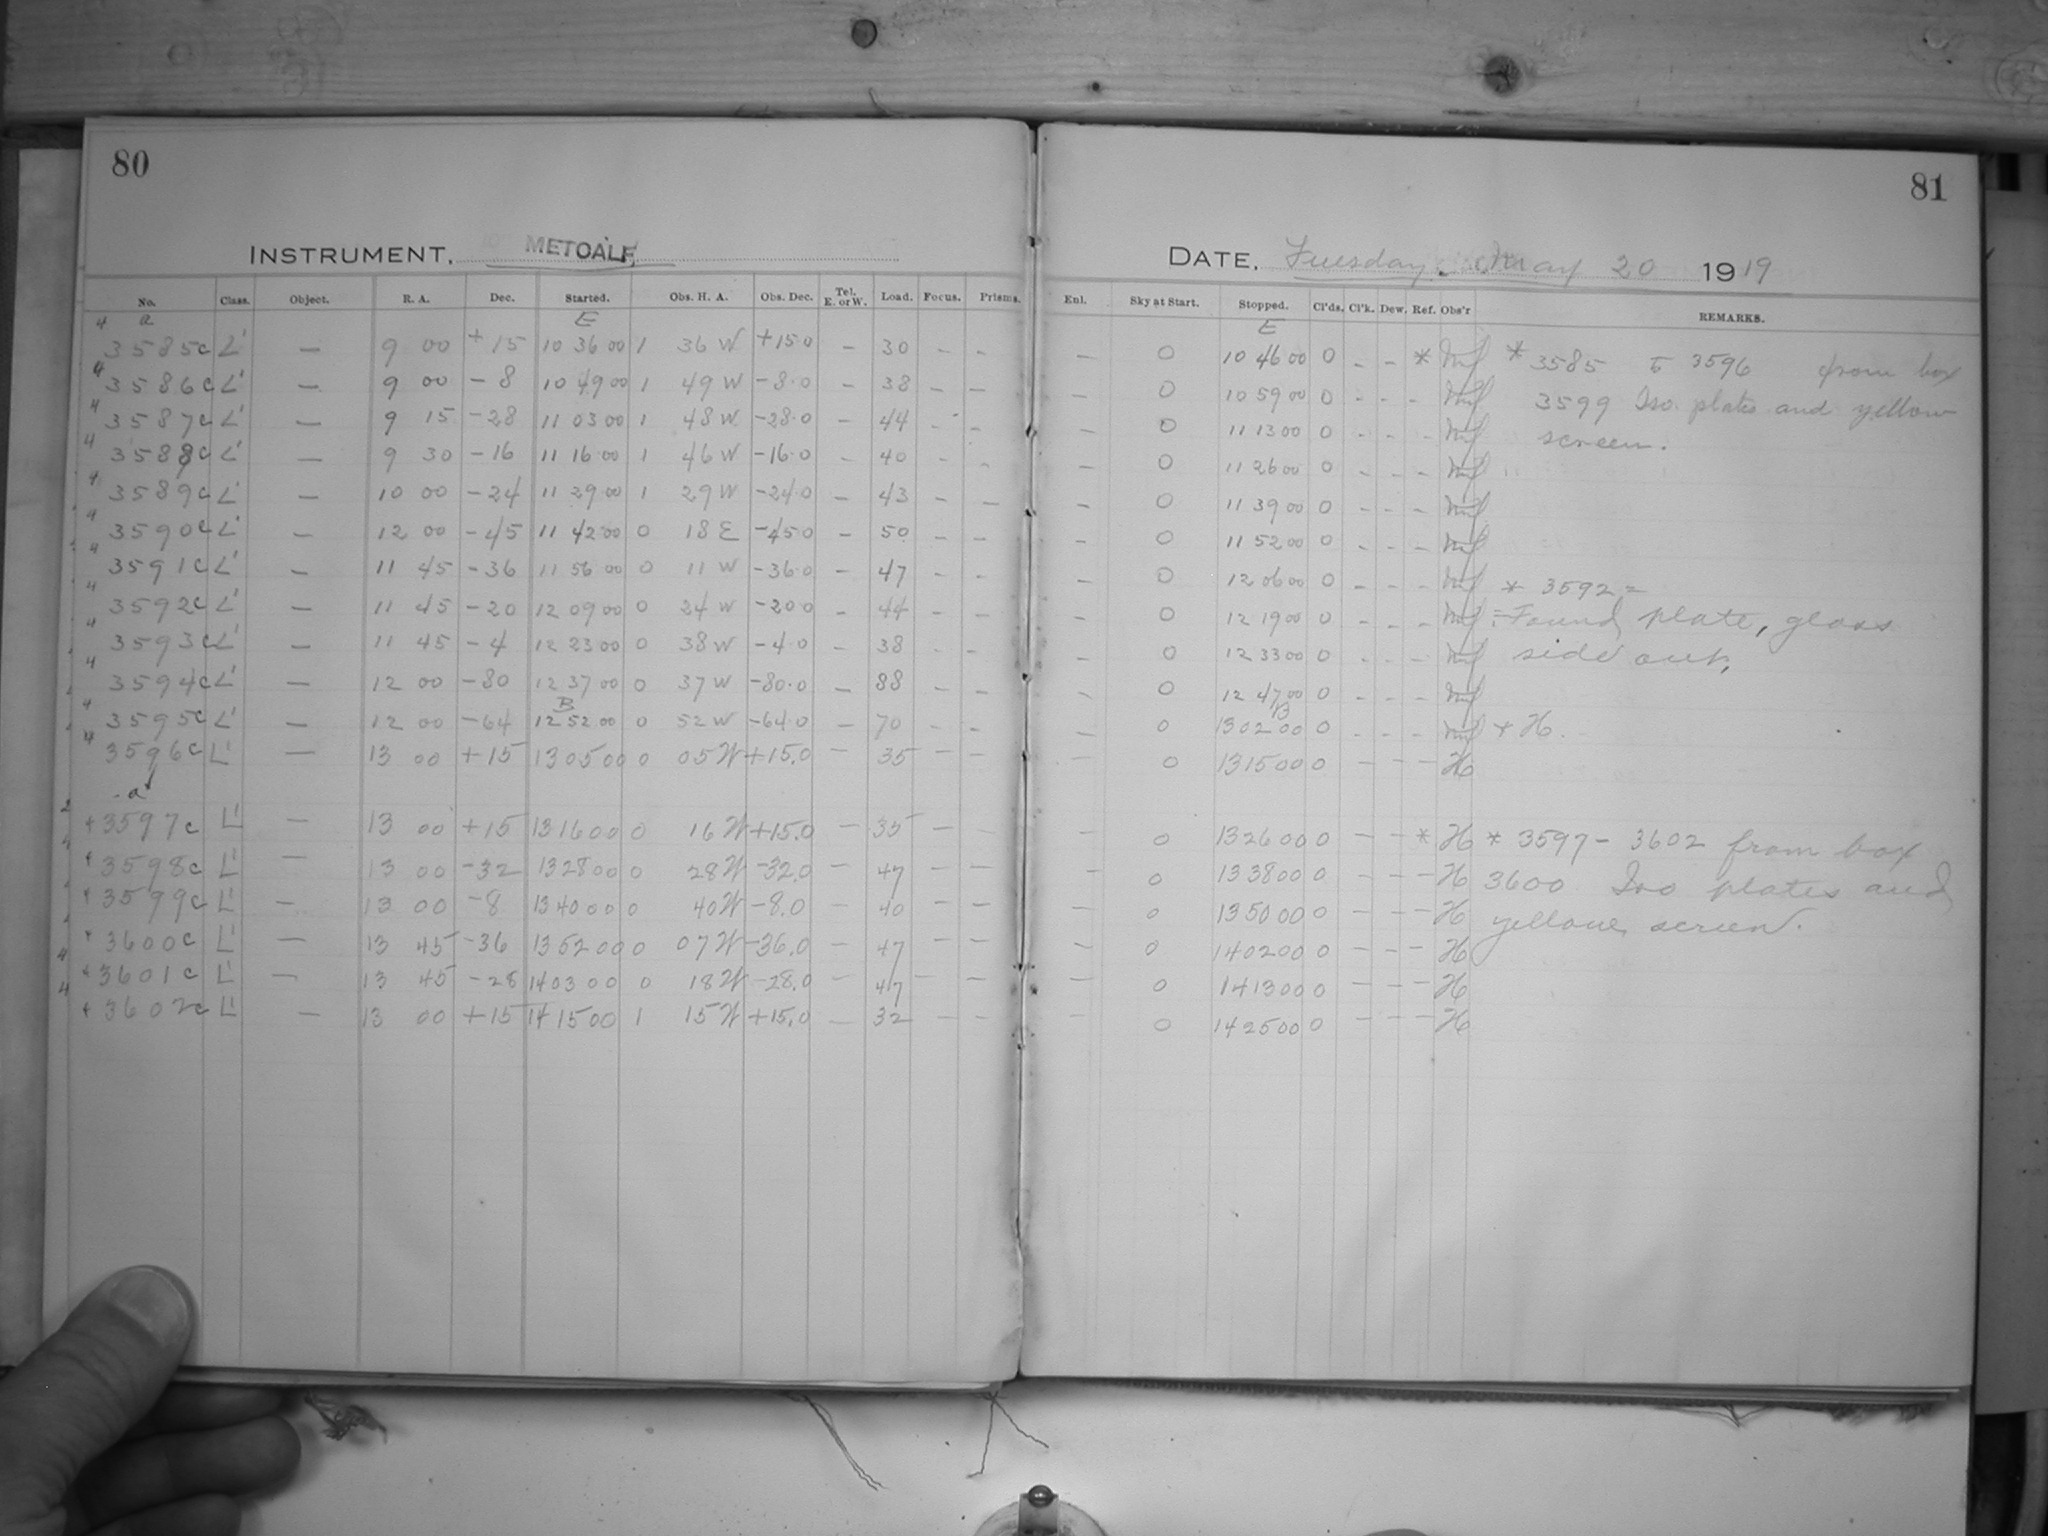 80
INSTRUMENT, METCALF
No. Class. Object. R. A. Dec. Started. Obs. H. A. Obs. Dec. Tel. E. or W. Load. Focus. Prisms.
4 a E
3585c L' — 9 00 +15 10 36 00 1 36 W +15.0 – 30 – –
4 3586c L' — 9 00 -8 10 49 00 1 49 W -8.0 – 38 – –
4 3587c L' — 9 15 -28 11 03 00 1 48 W -28.0 – 44 – –
4 3588c L' — 9 30 -16 11 16 00 1 46 W -16.0 – 40 – –
4 3589c L' — 10 00 -24 11 29 00 1 29 W -24.0 – 43 – –
4 3590c L' — 12 00 -45 11 42 00 0 18 E -45.0 – 50 – –
4 3591c L' — 11 45 -36 11 56 00 0 11 W -36.0 – 47 – –
4 3592c L' — 11 45 -20 12 09 00 0 24 W -20.0 – 44 – –
4 3593c L' — 11 45 -4 12 23 00 0 38 W -4.0 – 38 – –
4 3594c L' — 12 00 -80 12 37 00 0 37 W -80.0 – 88 – –
B
4 3595c L' — 12 00 -64 12 52 00 0 52 W -64.0 – 70 – –
4 3596c L' — 13 00 +15 13 05 00 0 05 W +15.0 – 35 – –
a
3597c L' — 13 00 +15 13 16 00 0 16 W +15.0 – 35 – –
3598c L' — 13 00 -32 13 28 00 0 28 W -32.0 – 47 – –
3599c L' — 13 00 -8 13 40 00 0 40 W -8.0 – 40 – –
3600c L' — 13 45 -36 13 52 00 0 07 W -36.0 – 47 – –
3601c L' — 13 45 -28 14 03 00 0 18 W -28.0 – 47 – –
3602c L' — 13 00 +15 14 15 00 1 15 W +15.0 – 32 – –
81
DATE, Tuesday, May 20 1919
Enl. Sky at Start. Stopped. Cl'ds. Cl'k. Dew. Ref. Obs'r REMARKS.
E
– 0 10 46 00 0 – – * * 3585 to 3596 from box
– 0 10 59 00 0 – – – 3599 Iso plates and yellow
– 0 11 13 00 0 – – – screen.
– 0 11 26 00 0 – – –
– 0 11 39 00 0 – – –
– 0 11 52 00 0 – – –
– 0 12 06 00 0 – – – * 3592 =
– 0 12 19 00 0 – – – = Found plate, glass
– 0 12 33 00 0 – – – side out.
– 0 12 47 00 0 – – –
B
– 0 13 02 00 0 – – – + H.
– 0 13 15 00 0 – – – H
– 0 13 26 00 0 – – * H * 3597 – 3602 from box
– 0 13 38 00 0 – – – H 3600 Iso plates and
– 0 13 50 00 0 – – – H yellow screen.
– 0 14 02 00 0 – – – H
– 0 14 13 00 0 – – – H
– 0 14 25 00 0 – – – H